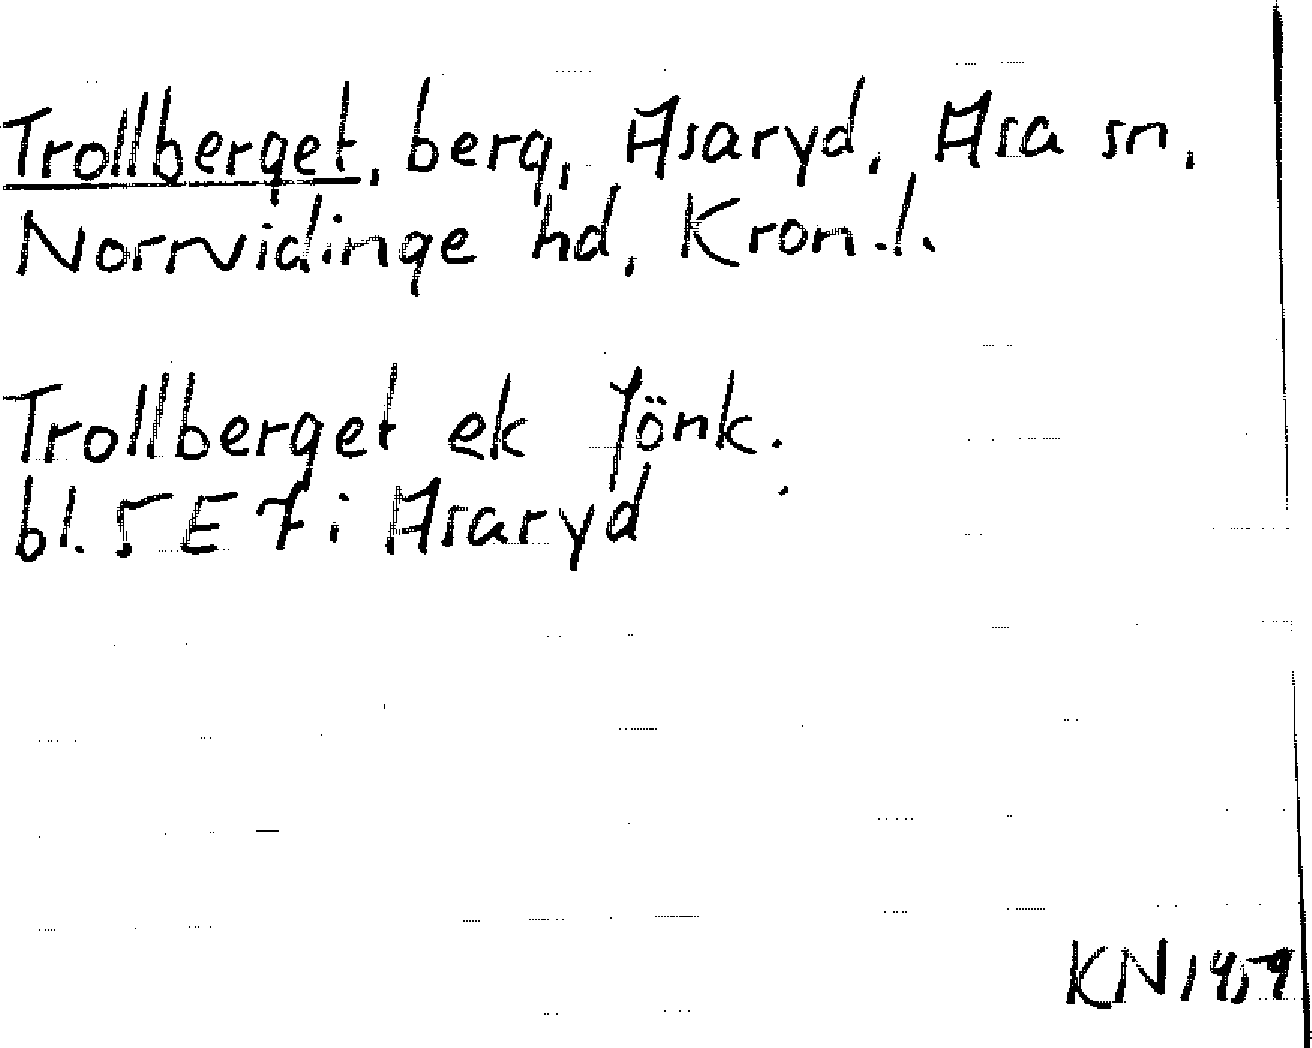 Trollberget, berg, Asaryd, Asa sn,
Norrvidinge hd, Kron.l.
Trollberget ek Jönk.
bl. 5 E 7 i Asaryd
KN 1959